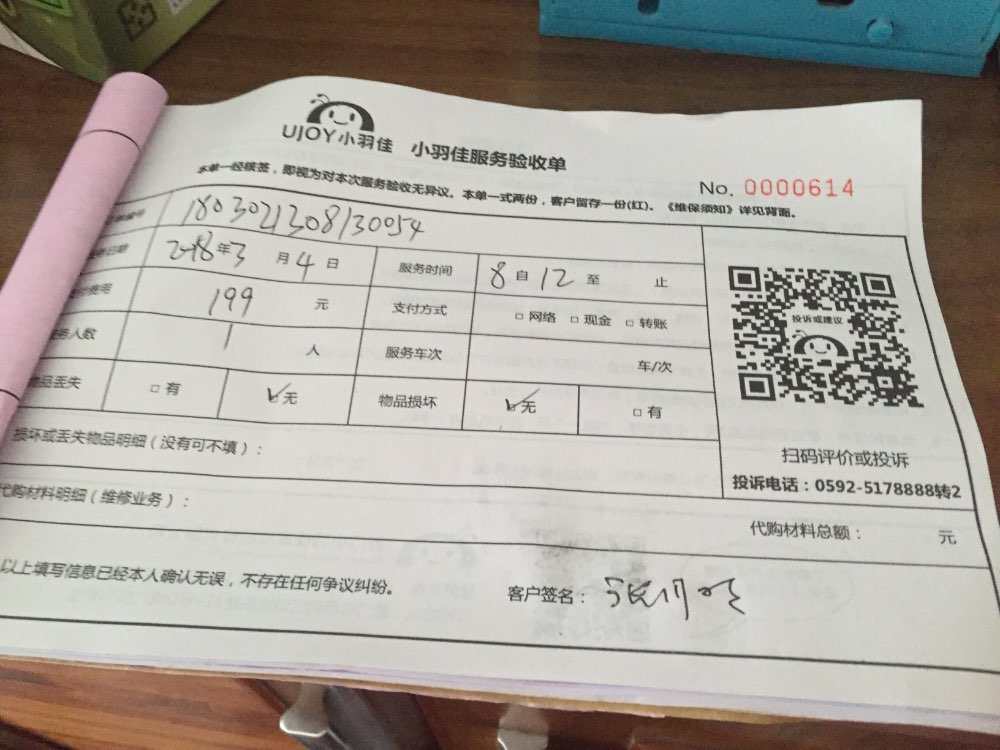 UJOY小羽佳 小羽佳服务验收单
本单一经核签，即视为对本次服务验收无异议。本单一式两份，客户留存一份(红)。《维保须知》详见背面。
No. 0000614
编号 1803021208130054
日期 2018年3月4日 服务时间 8自12至 止
费明 199 元 支付方式 □网络 □现金 □转账
务人数 1 人 服务车次 车/次
物品丢失 □有 ☑无 物品损坏 ☑无 □有
投诉或建议
扫码评价或投诉
投诉电话：0592-5178888转2
损坏或丢失物品明细（没有可不填）：
代购材料明细（维修业务）：
代购材料总额： 元
以上填写信息已经本人确认无误，不存在任何争议纠纷。
客户签名：